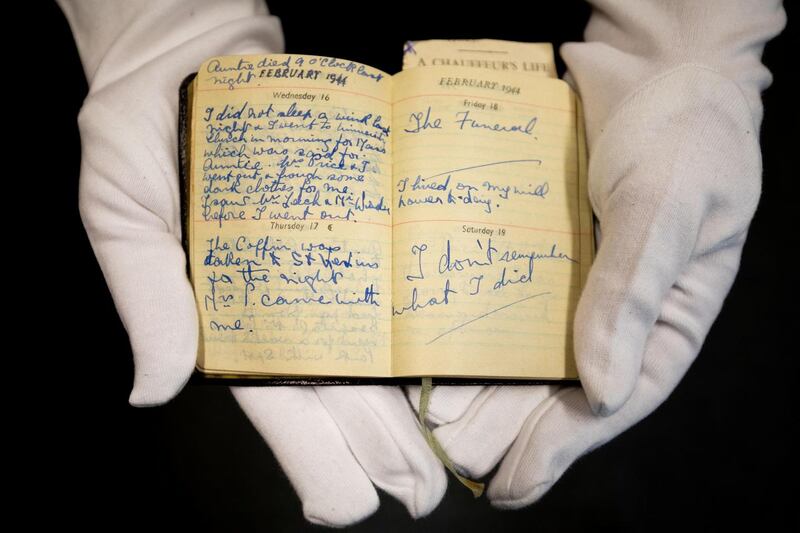 Auntie died 9 O'Clock last
night. FEBRUARY 1944
Wednesday 16
I did not sleep a wink last
night & I went to
church in morning for Mass
which was said for
Auntie. Mrs Price & I
went out & bough some
dark clothes for me.
I saw Mr. & Mr.
before I went out.
Thursday 17
The Coffin was
taken to St
for the night
Mrs P. came with
me.
A CHAUFFEUR'S LIFE
FEBRUARY 1944
Friday 18
The Funeral.
I lived on my will
power to-day.
Saturday 19
I don't remember
what I did